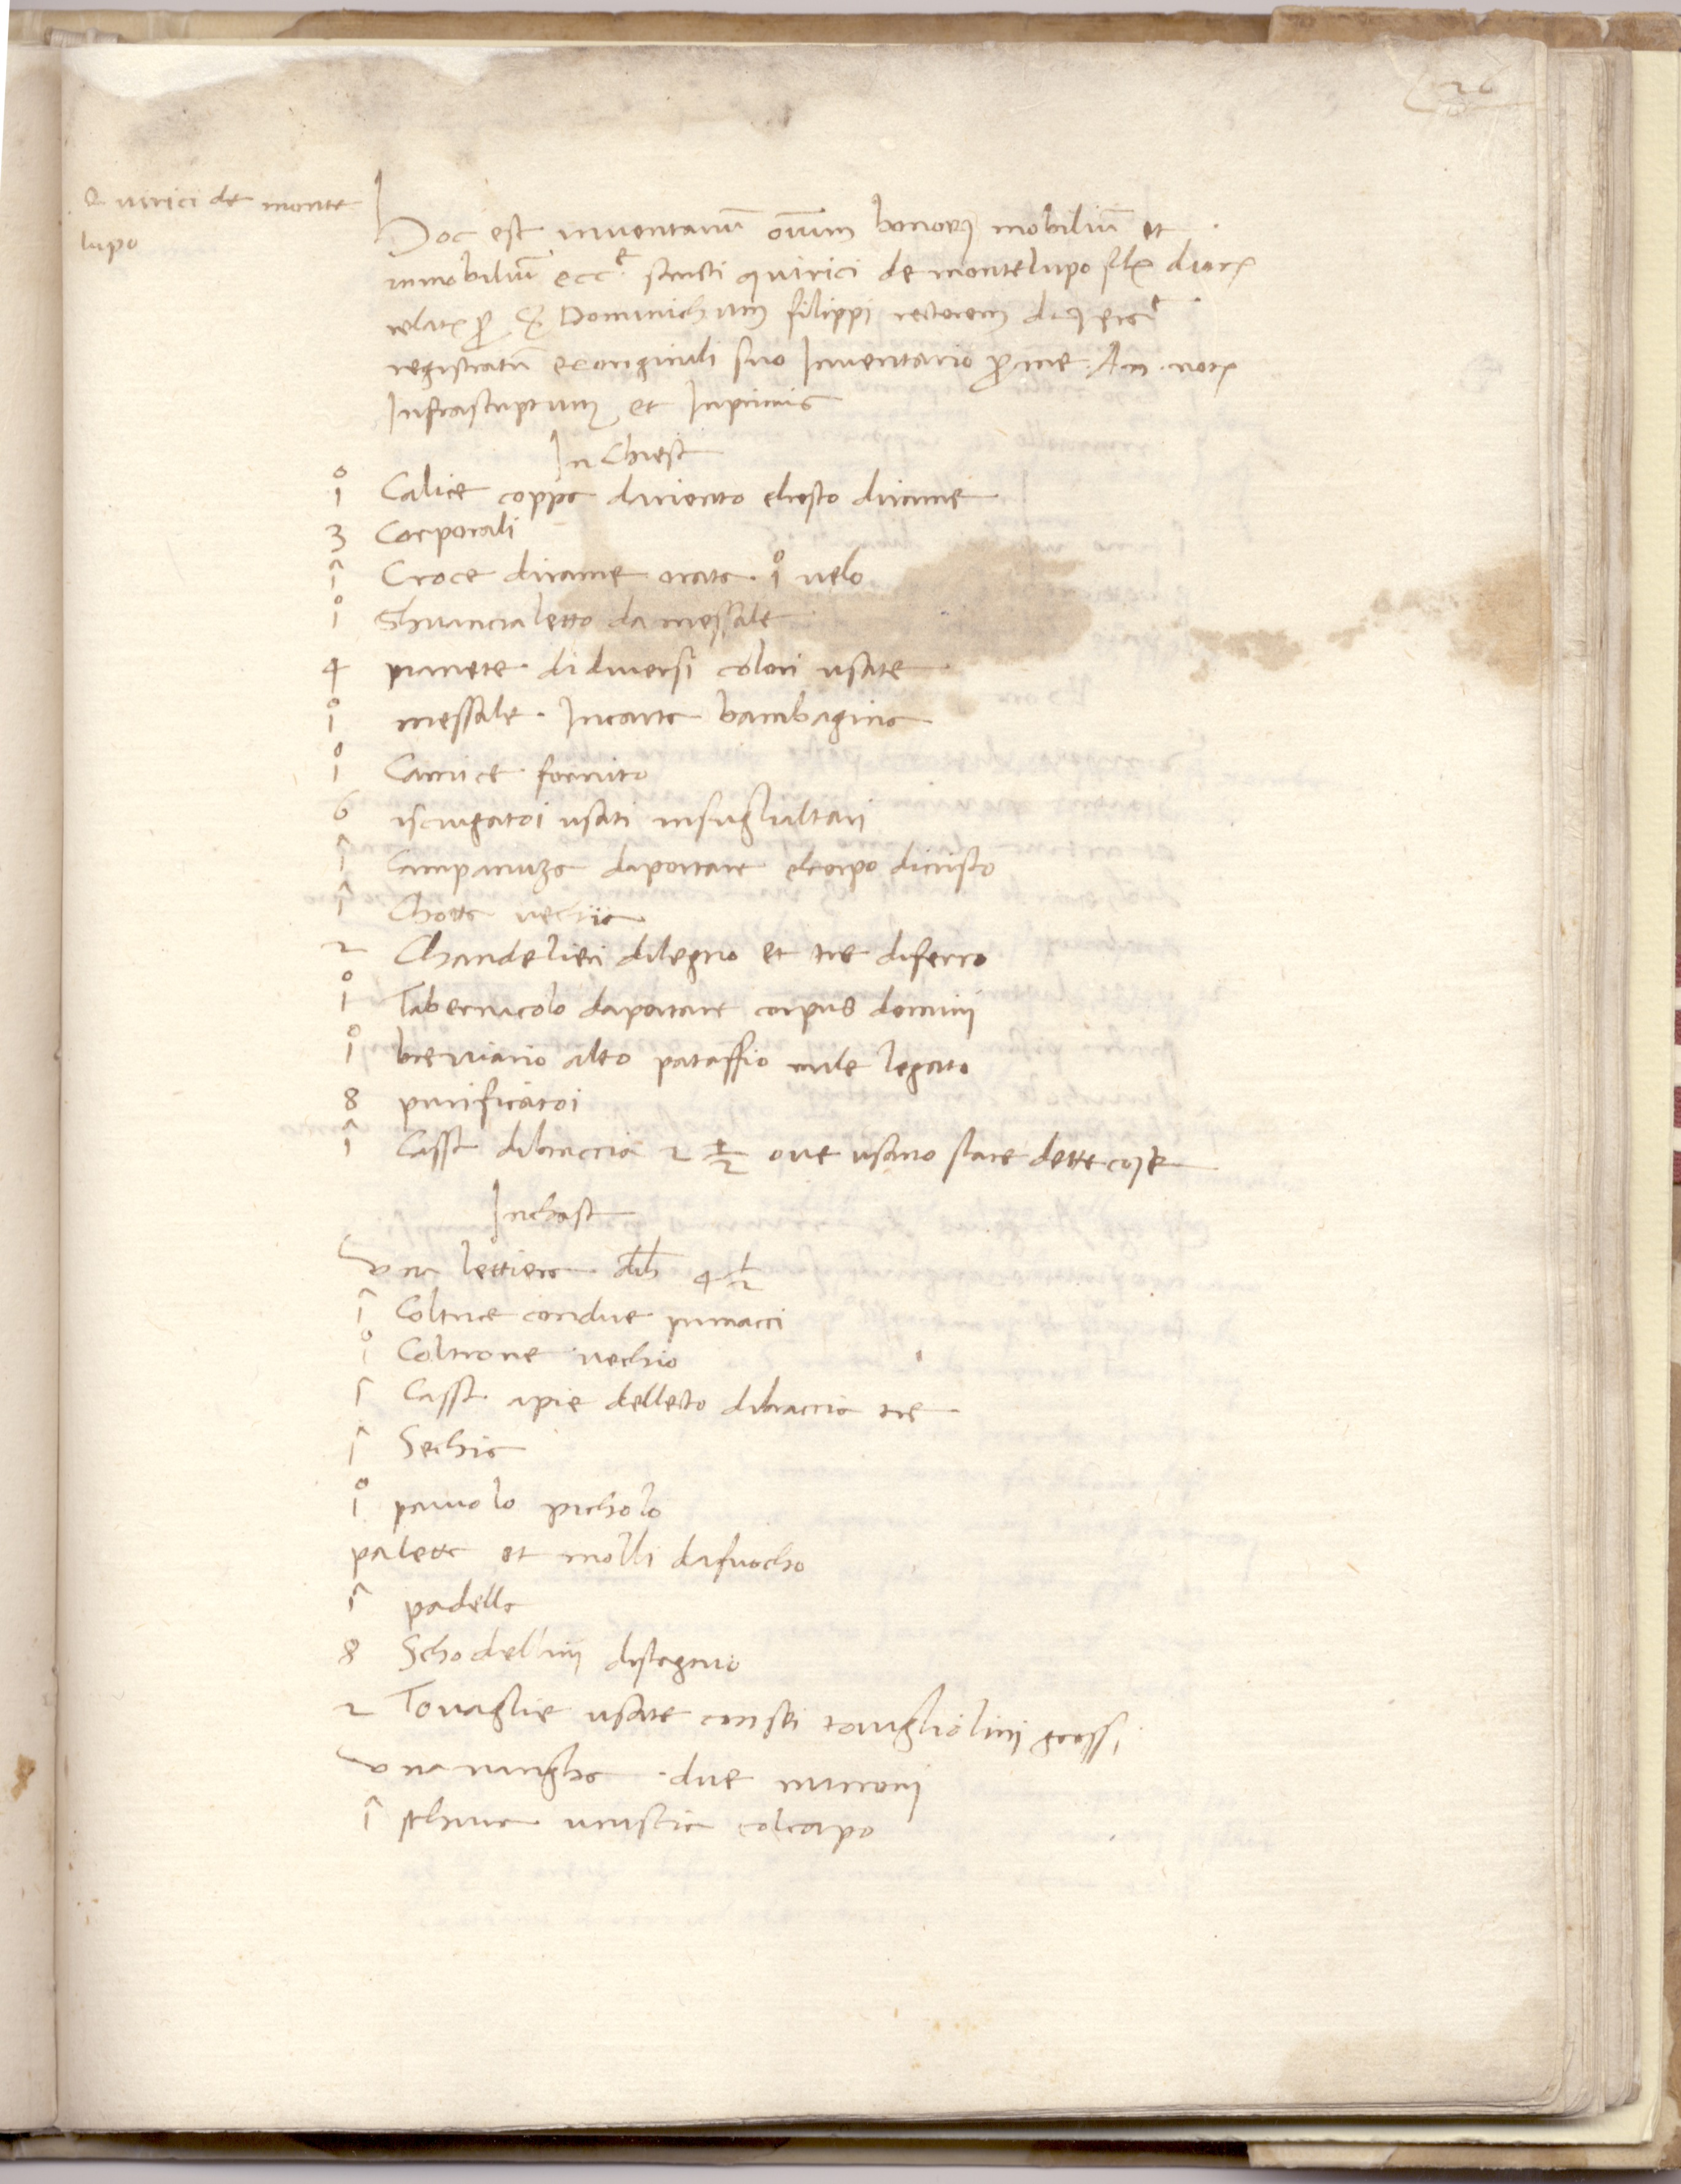 26
Quirici de monte
lupo
Hoc est inventariū oīum bonorꝝ mobiliū et
inmobiliū eccᵉ sancti quirici de montelupo
relatꝝ ꝑ Dominichum filippi rectorem
registratū ex originali suo Inventario ꝑ me An. notꝝ
Infrascriptum et Inprimis
In Chiesa
1º Calice coppa dariento elresto dirame
3 Corporali
1ª Croce dirame orata. 1º velo
1º Ghuancialetto da messale
4 pianete di diversi colori usate
1º messale. Incarta bambagina
1º Camice fornito
6 isciugatoi usati insuglialtari
1ª Campanuza daportare elcorpo dicristo
1ª Chotta vechia
2 Chandelieri dilegno et tre diferro
1º Tabernacolo daportare corpus domini
1º breviario alto pataffio male legato
8 purificatoi
1ª Cassa dibraccia 2 1/2 ove usano stare dette cose
Inchasa
Una lettiera dib 4 1/2
1ª Coltrice condue pimacci
1º Coltrone vechio
1ª Cassa apie delletto dibraccia tre
1ª Sechia
1º paiuolo picholo
paletta et molli dafuocho
1ª padella
8 Schodellini distagno
2 Tovaglie usate consei tovagliolini grossi
Una vangha. due marroni
1ª col capo